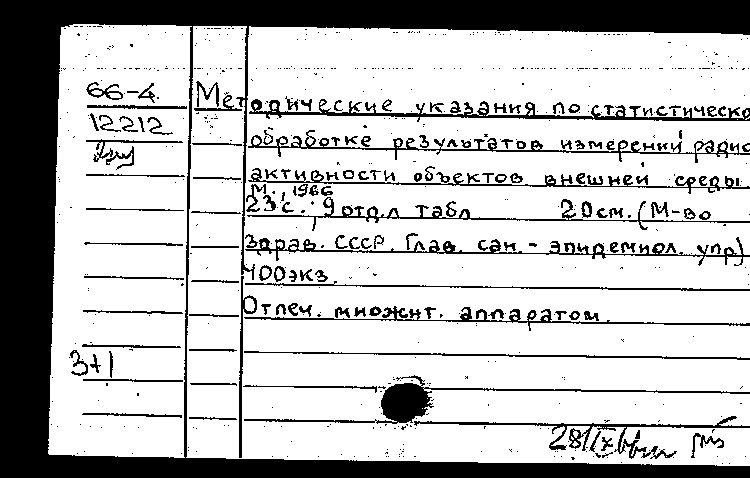 66-4
12212
Методические указания по статистическо
обработке результатов измерений радио
активности объектов внешней среды
М., 1966
23 с.; 9 отд.л табл 20 см. (М-во
Здрав. СССР. Глав. сан. - эпидемиол. упр)
400 экз.
Отпеч. множит. аппаратом.
3+1